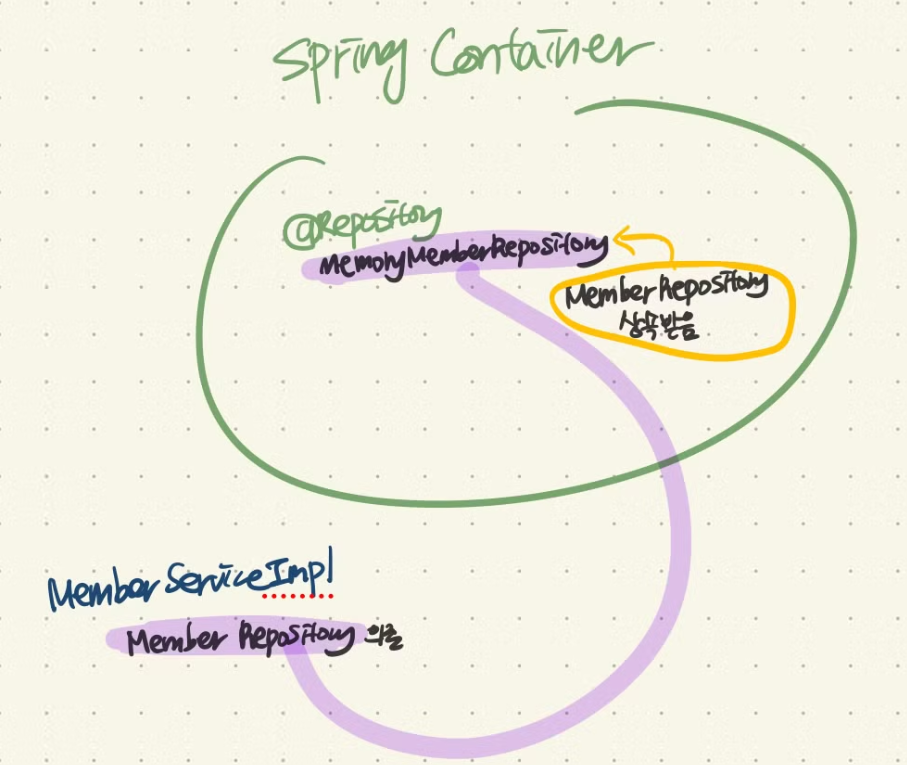 Spring Container
@Repository
MemoryMemberRepository
MemberRepository
상속받음
MemberServiceImpl
Member Repository 의존